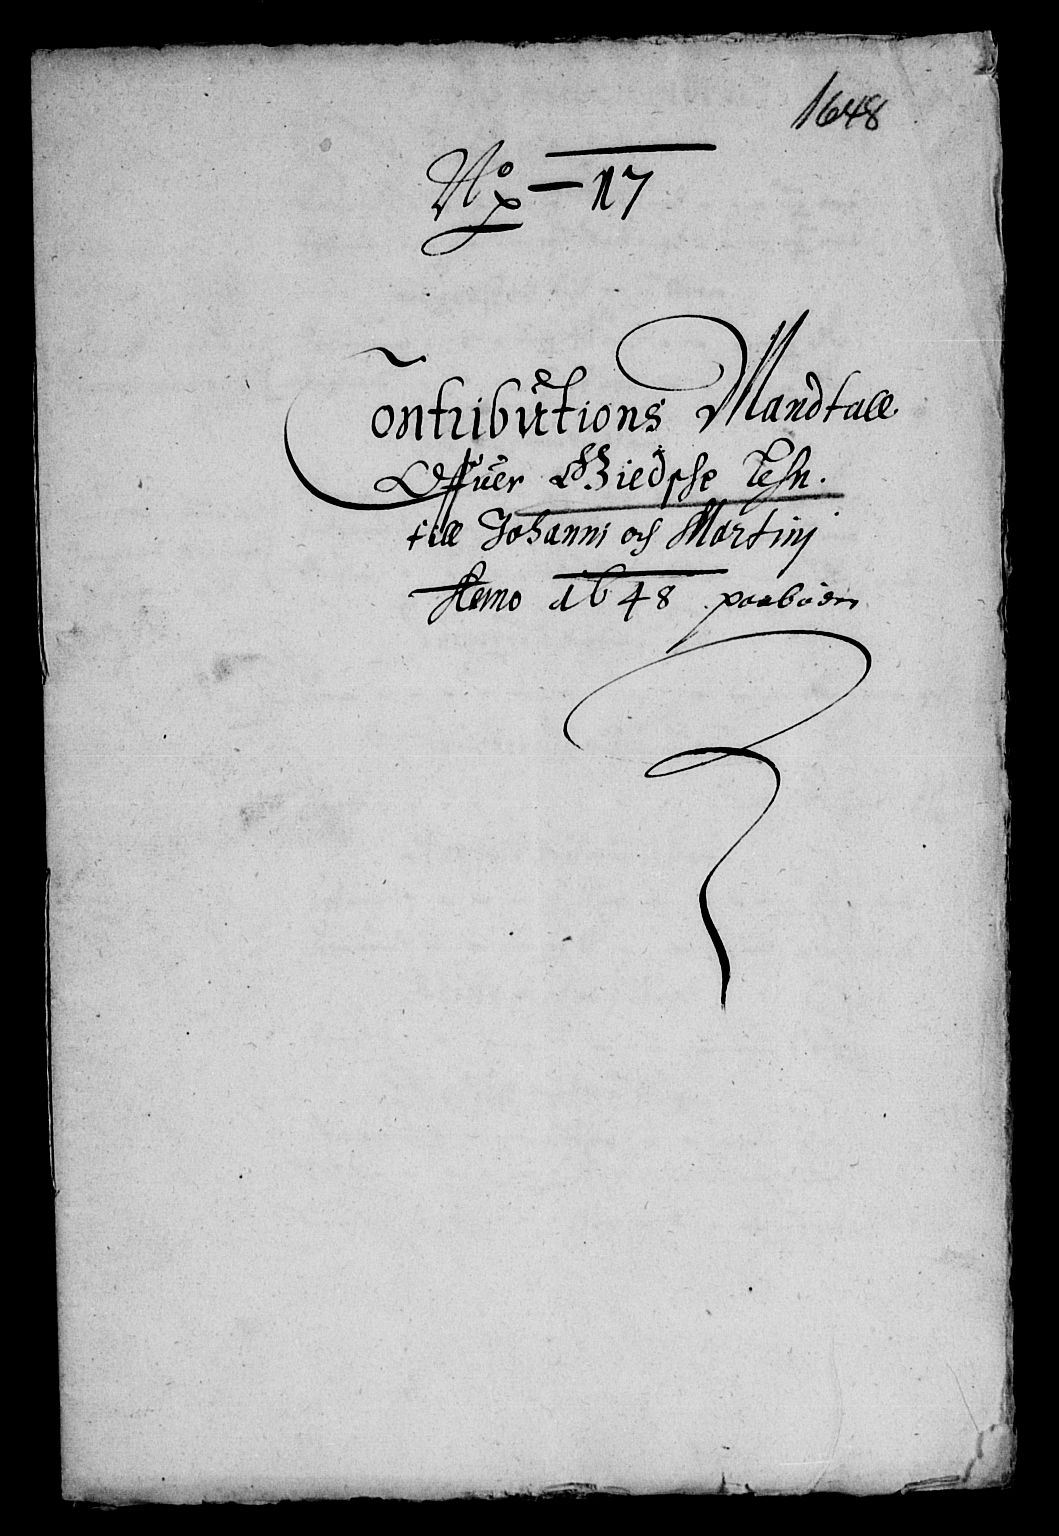 1648
No — 17
Contributions Mandtall
Offuer Giedsche Lehn.
till Johanni och Martinj
Anno 1648 paabøden